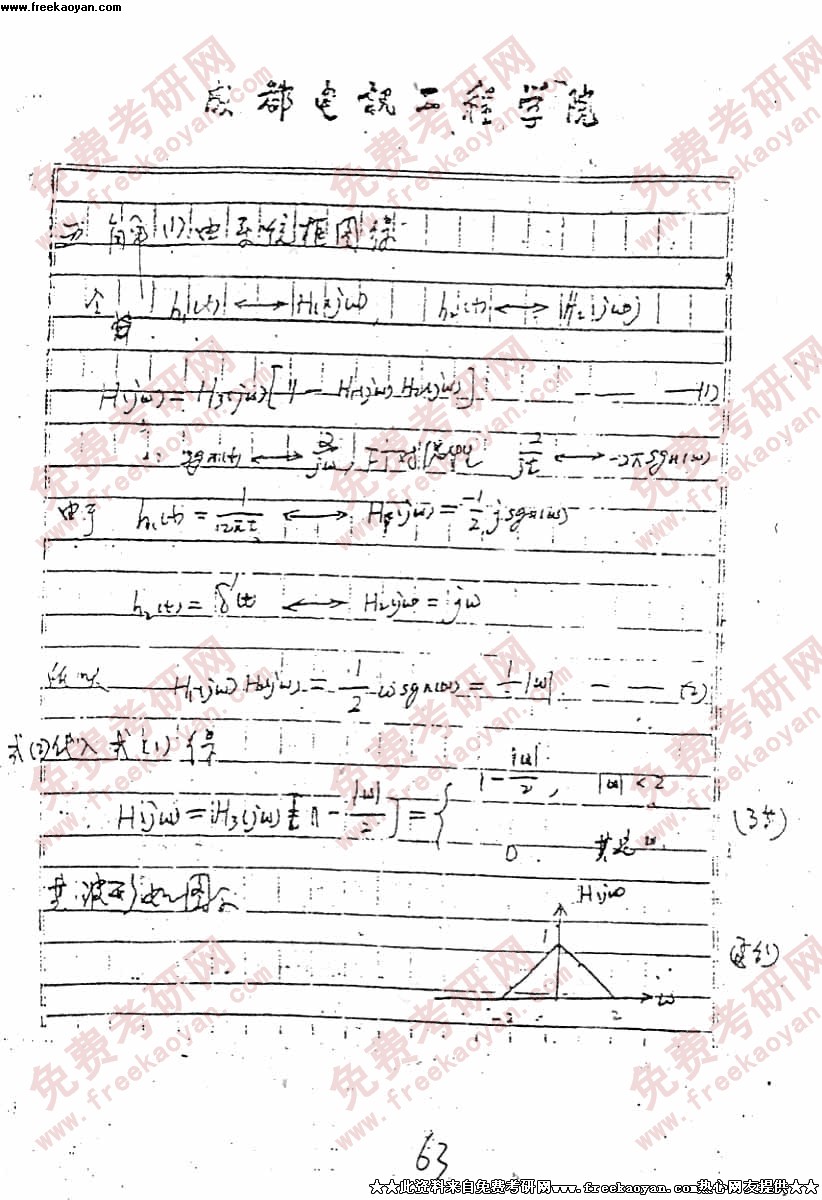 www.freekaoyan.com
成都电讯工程学院
解 (1) 由系统框图得
令 h₁(t) ↔ H₁(jω), h₂(t) ↔ H₂(jω)
H(jω) = H₃(jω)[1 - H₁(jω)H₂(jω)] — — (1)
∵ sgn(t) ↔ 2/jω, 2/jt ↔ -2πsgn(ω)
由于 h₁(t) = 1/2πt ↔ H₁(jω) = -1/2 j sgn(ω)
h₂(t) = δ'(t) ↔ H₂(jω) = jω
所以 H₁(jω)H₂(jω) = 1/2 ω sgn(ω) = 1/2 |ω| — — (2)
式(2)代入式(1)得
∴ H(jω) = H₃(jω)[1 - |ω|/2] = { 1 - |ω|/2, |ω| < 2
0 其它ω (3分)
其波形如图
H(jω)
1
-2 2 ω
63
★★此资料来自免费考研网www.freekaoyan.com热心网友提供★★
免费考研网
www.freekaoyan.com